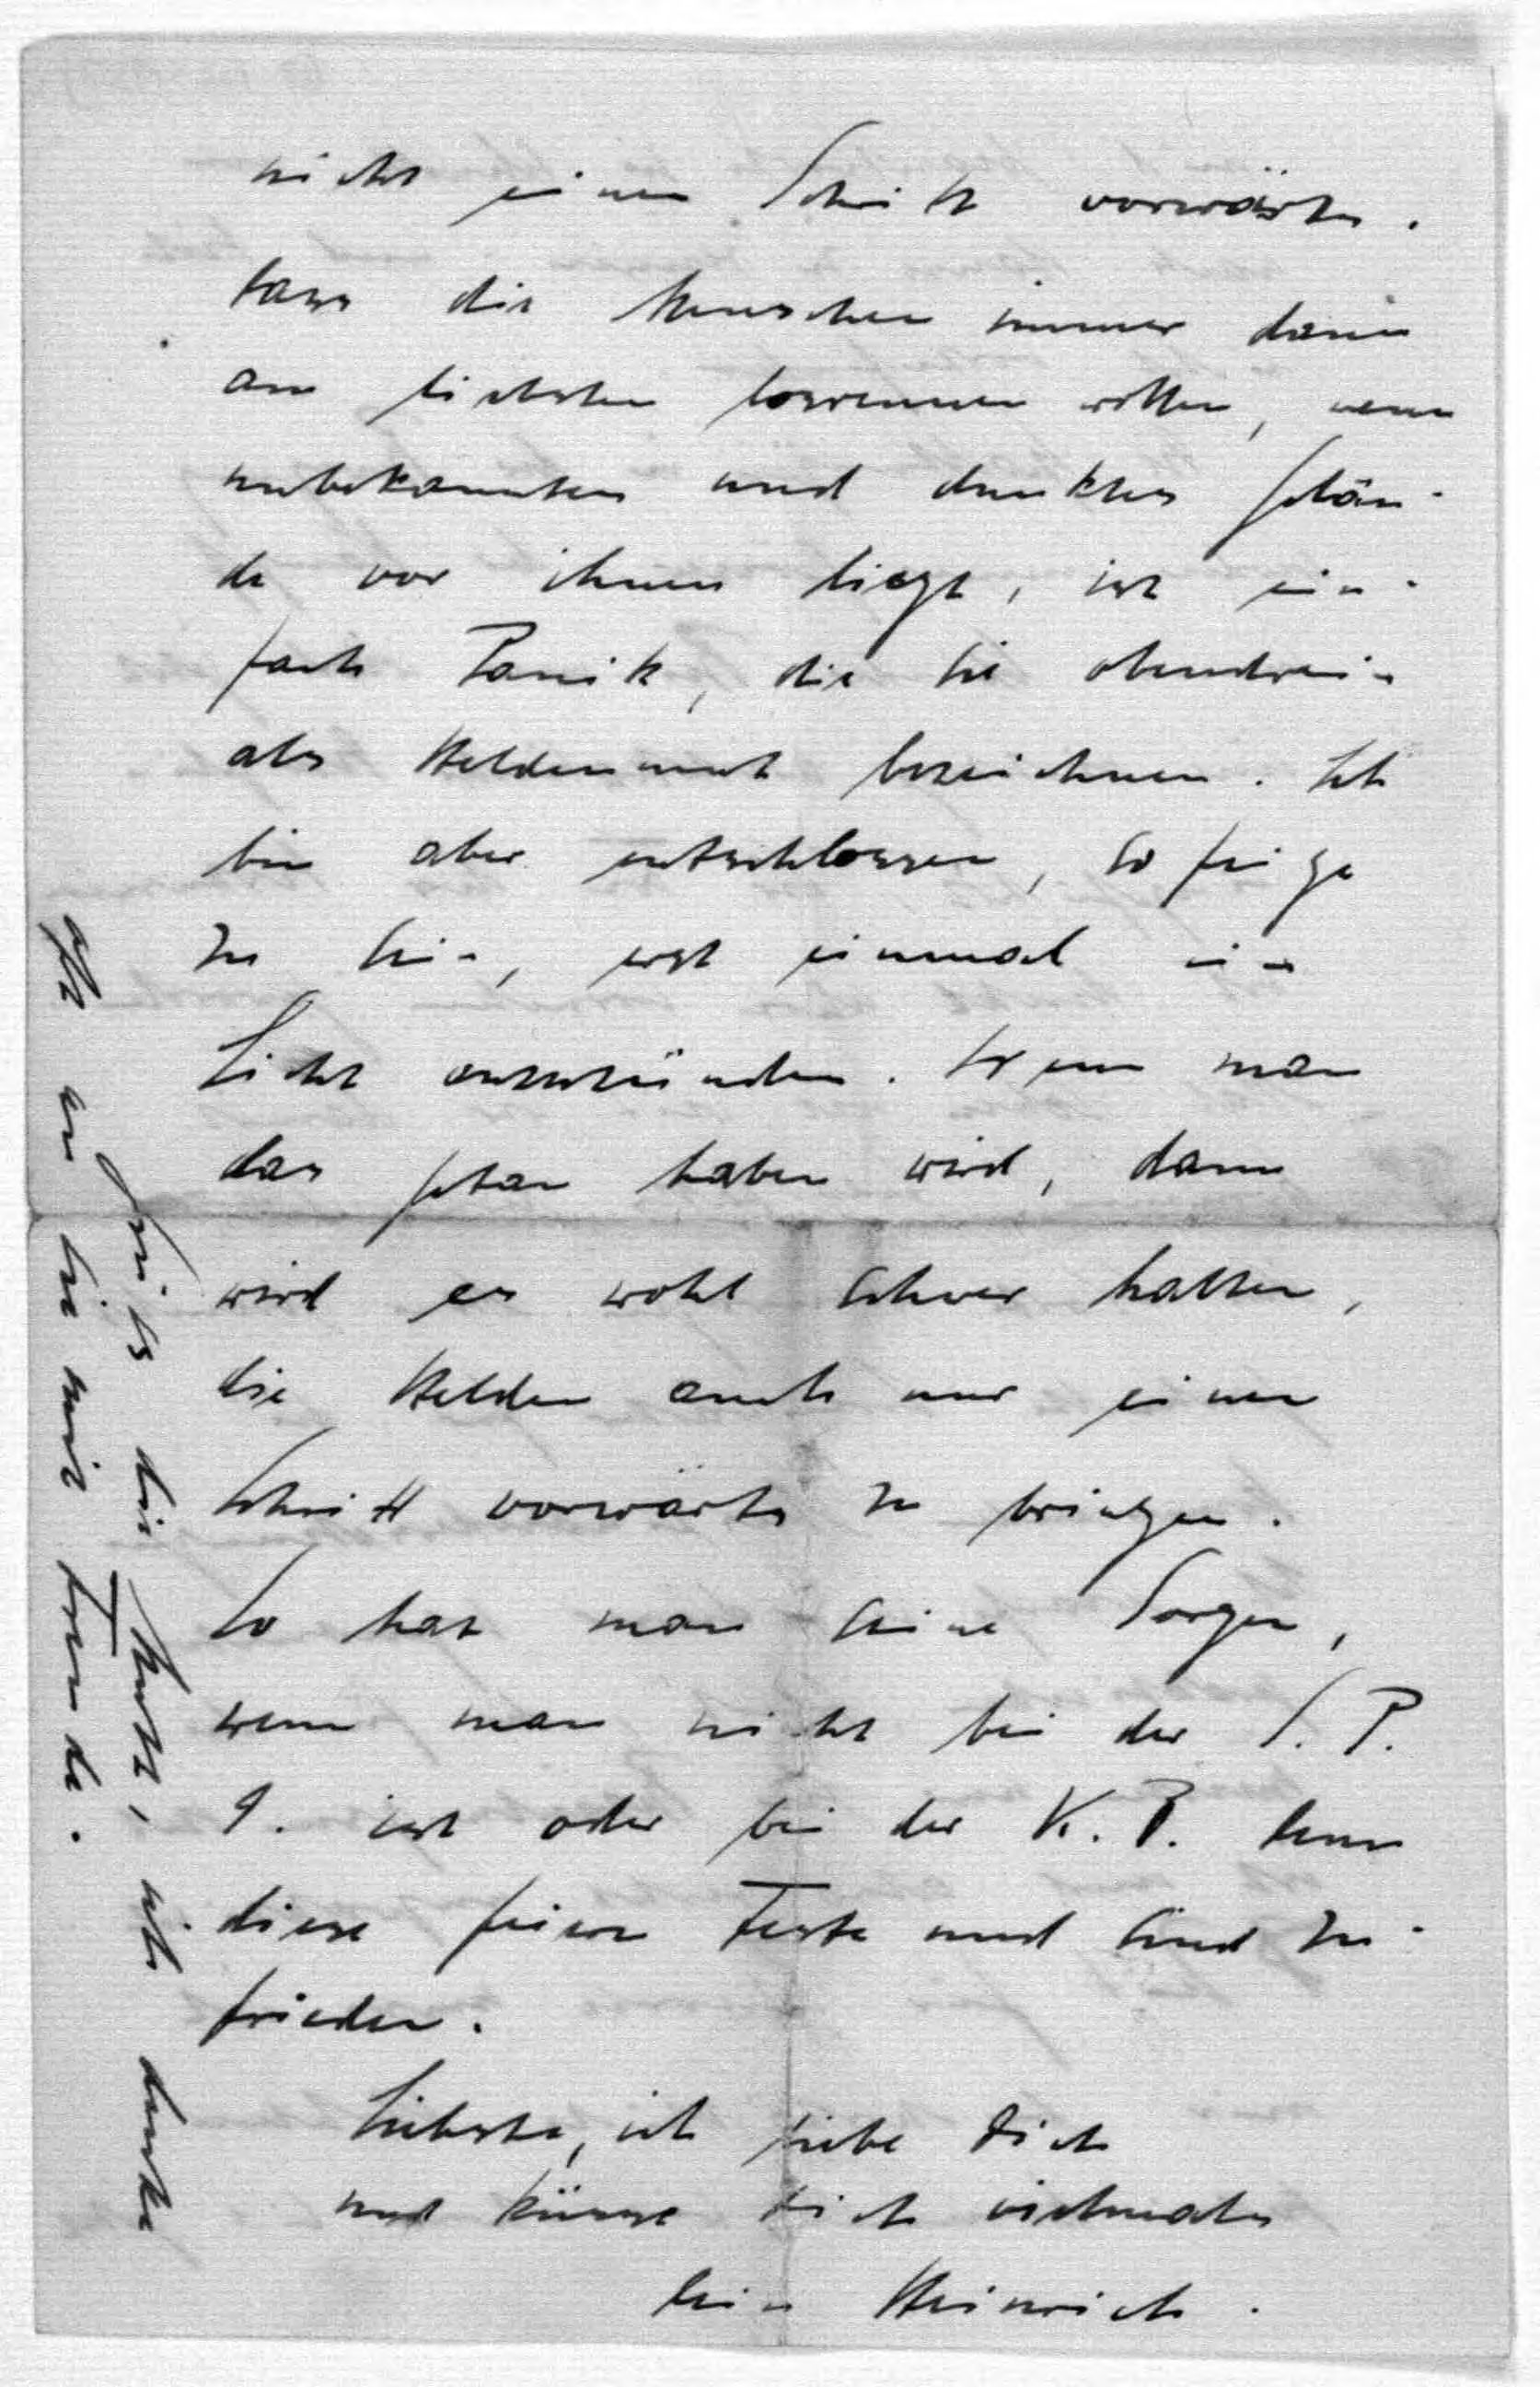 nicht einen Schritt vorwärts.
Dass die Menschen immer dann
am liebsten losrennen wollen, wenn
unbekanntes und dunkles Gelän-
de vor ihnen liegt, ist ein-
fach Panik, die sie obendrein
als Heldenmut bezeichnen. Ich
bin aber entschlossen, so feige
zu sein, erst einmal ein
Licht anzuzünden. Wenn man
das getan haben wird, dann
wird es wohl schwer halten,
die Helden auch nur einen
Schritt vorwärts zu bringen.
So hat man seine Sorgen,
wenn man nicht bei der S. P.
D. ist oder bei der K. P. Denn
diese feiern Feste und sind zu-
frieden.
Liebste, ich liebe Dich
und küsse Dich vielmals
Dein Heinrich.
Grüss die Mutti, ich denke
oft an sie mit Freude.